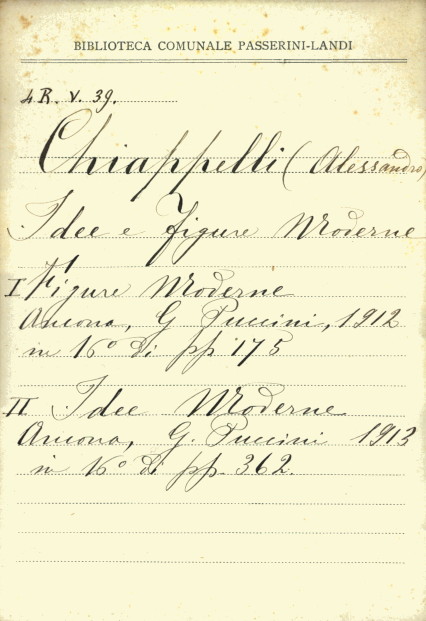 BIBLIOTECA COMUNALE PASSERINI-LANDI
4 R. V. 39.
Chiappelli (Alessandro)
Idee e figure Moderne
I Figure Moderne
Ancona, G Puccini, 1912
in 16º di pp 175
II Idee Moderne
Ancona, G. Puccini 1913
in 16º di pp. 362.